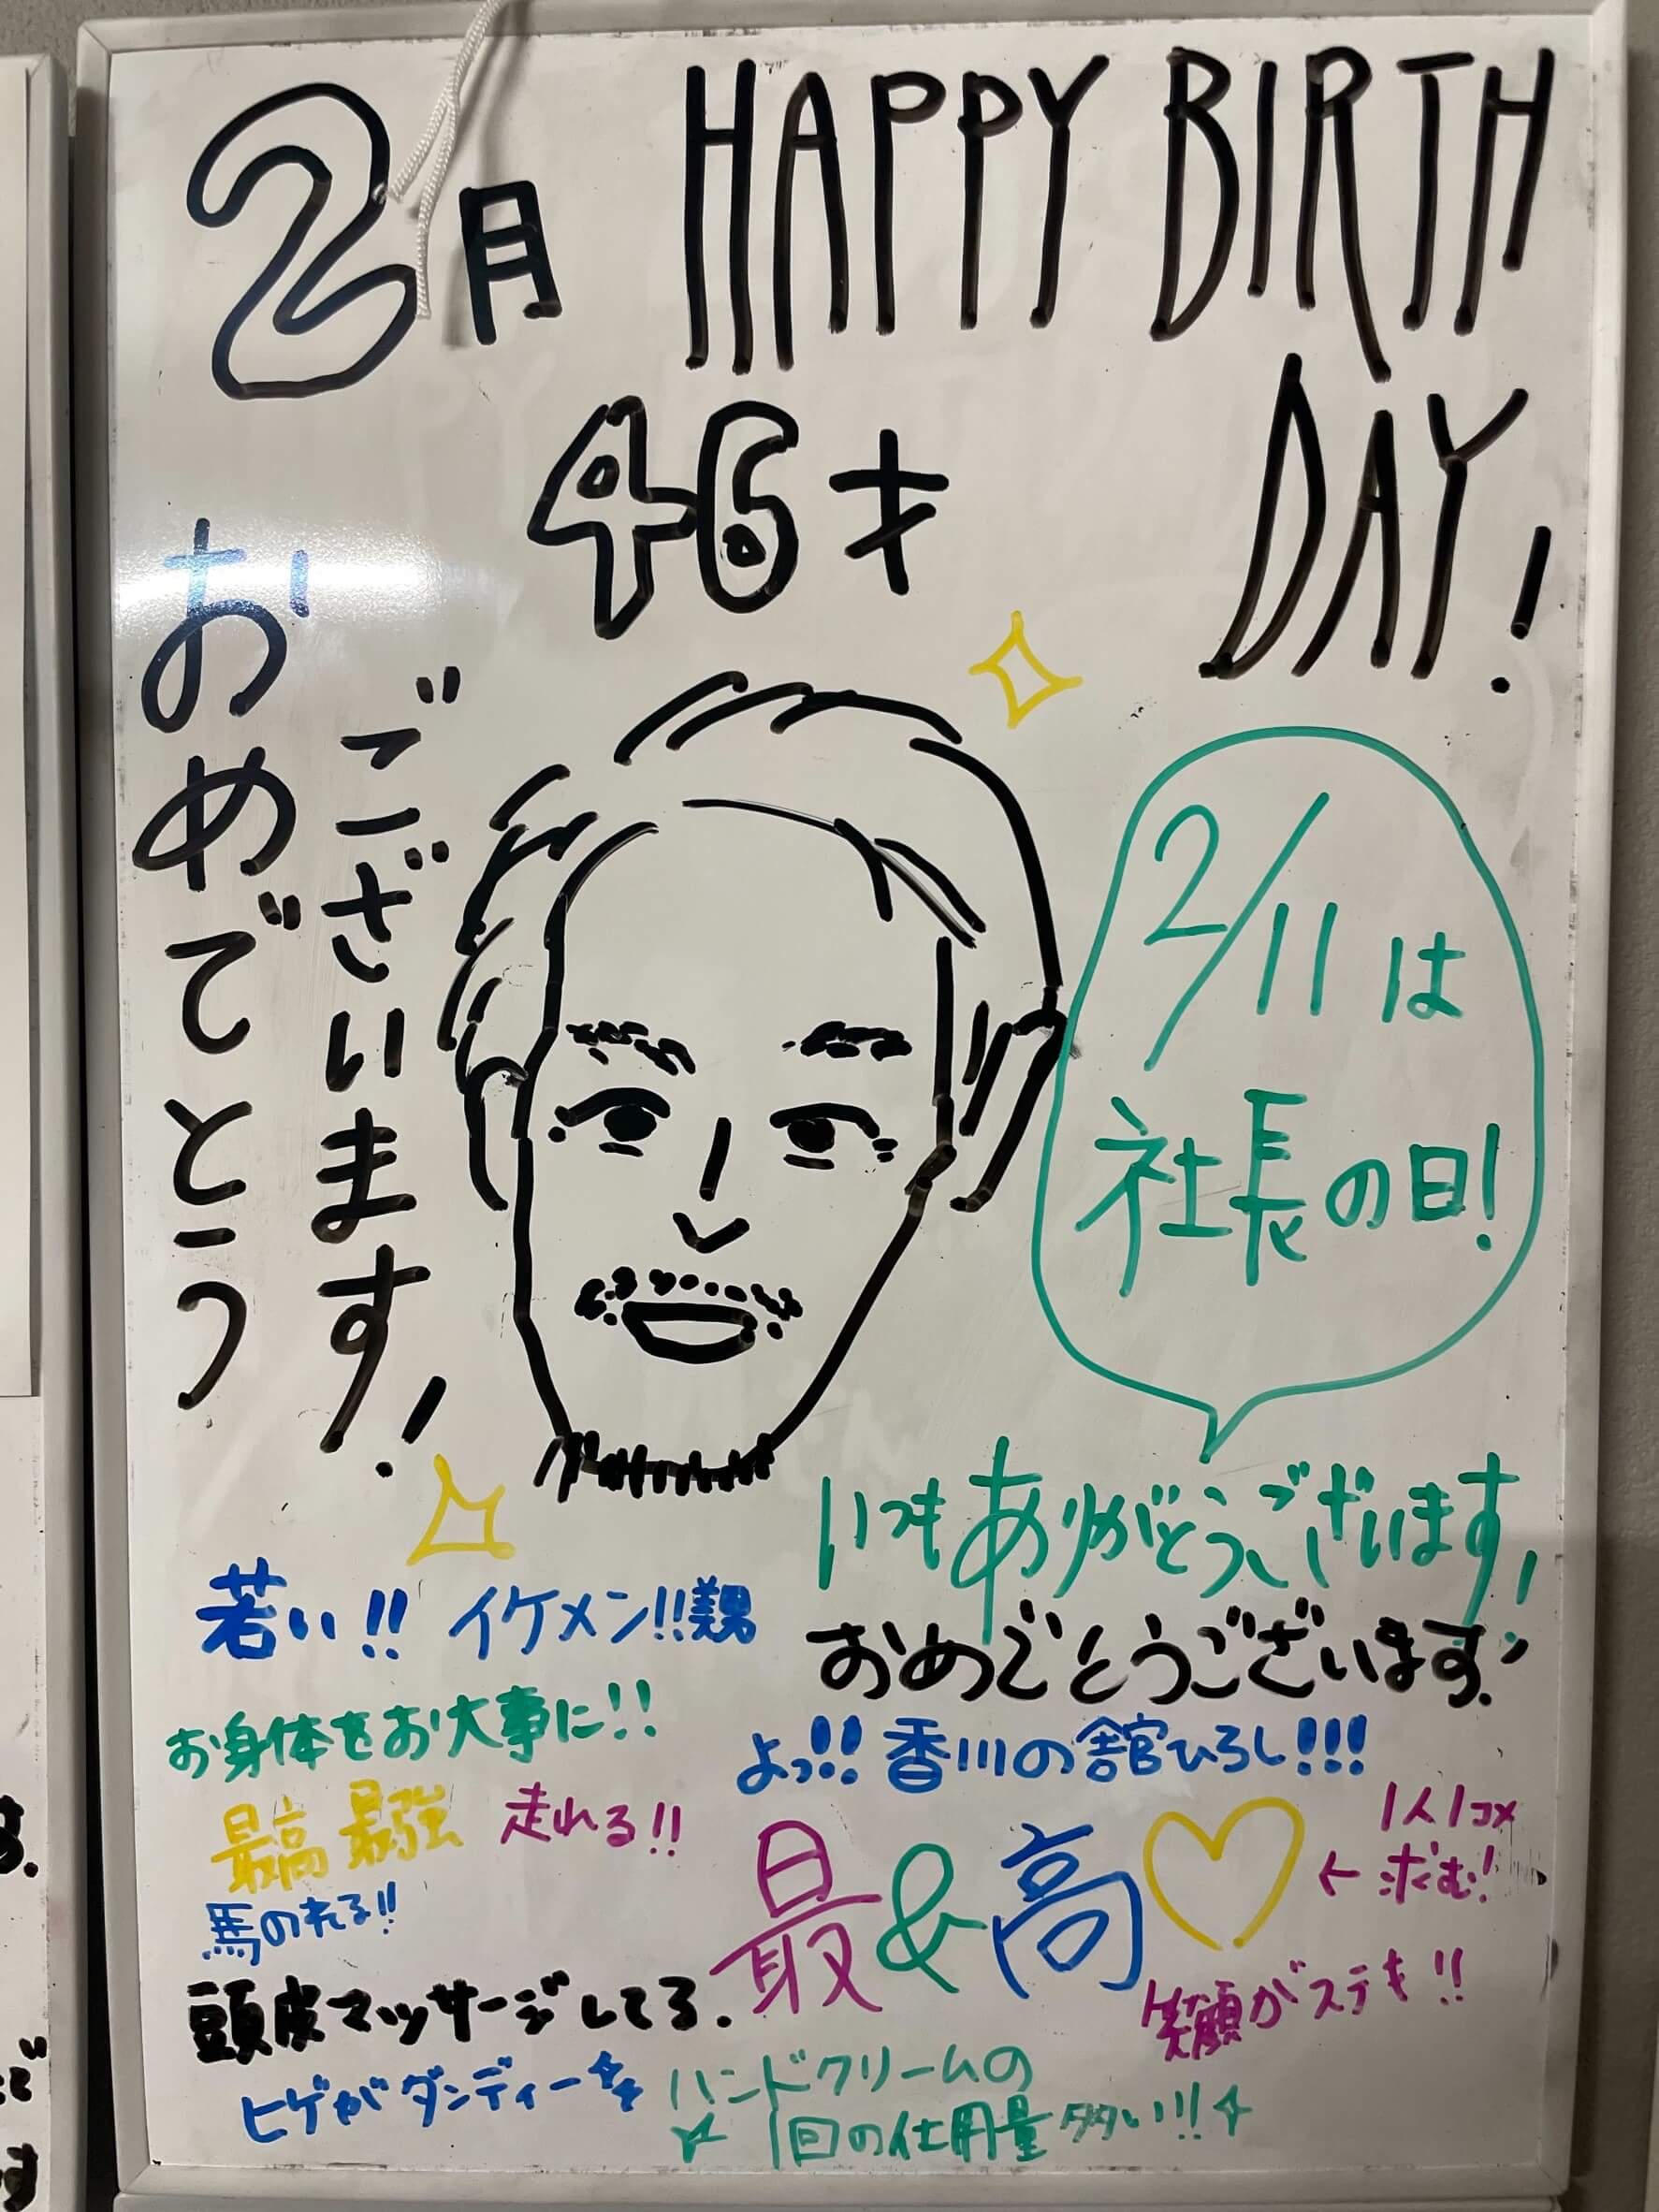 2月
HAPPY BIRTH
DAY!
46才
おめでとう
ございます!
2/11は
社長の日!
いつもありがとうございます!
おめでとうございます!
若い!! イケメン!!美男
お身体をお大事に!!
よっ!! 香川の舘ひろし!!!
最高 最強
走れる!!
馬のれる!!
最&高♡
←
1人1コメ
求む!
頭皮マッサージしてる.
笑顔がステキ!!
ヒゲがダンディー
ハンドクリームの
1回の仕用量多い!!